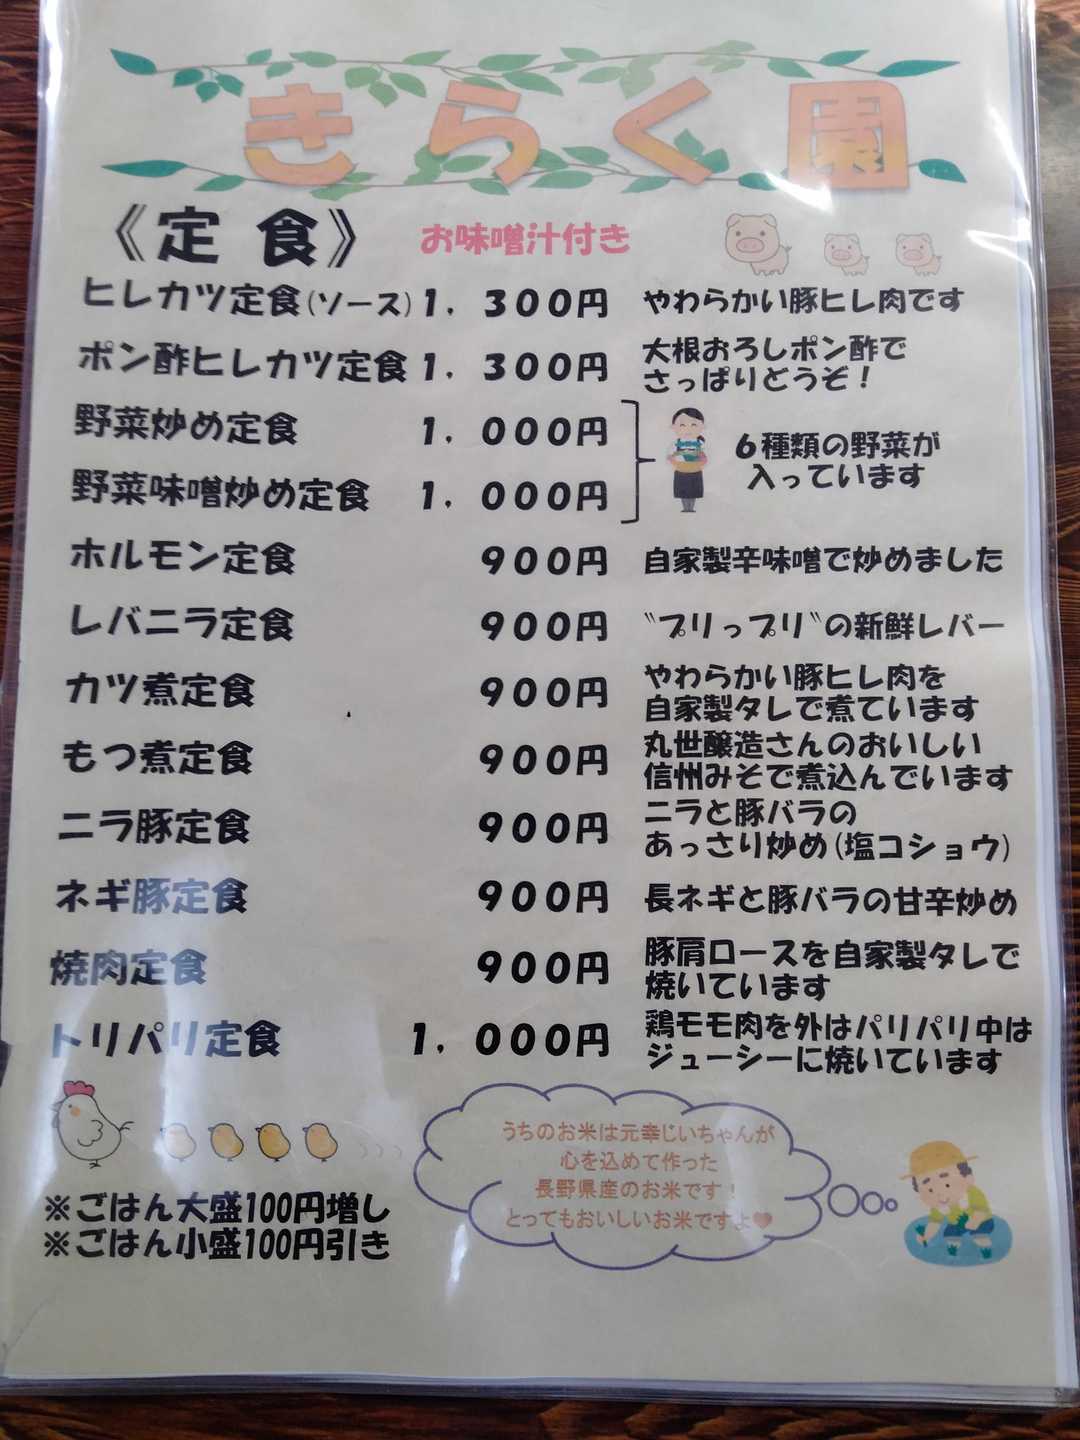 きらく園
《定食》 お味噌汁付き
ヒレカツ定食(ソース) 1,300円 やわらかい豚ヒレ肉です
ポン酢ヒレカツ定食 1,300円 大根おろしポン酢で
さっぱりとうぞ!
野菜炒め定食 1,000円
野菜味噌炒め定食 1,000円
6種類の野菜が
入っています
ホルモン定食 900円 自家製辛味噌で炒めました
レバニラ定食 900円 〝プリっプリ〟の新鮮レバー
カツ煮定食 900円 やわらかい豚ヒレ肉を
自家製タレで煮ています
もつ煮定食 900円 丸世醸造さんのおいしい
信州みそで煮込んでいます
ニラ豚定食 900円 ニラと豚バラの
あっさり炒め(塩コショウ)
ネギ豚定食 900円 長ネギと豚バラの甘辛炒め
焼肉定食 900円 豚肩ロースを自家製タレで
焼いています
トリパリ定食 1,000円 鶏モモ肉を外はパリパリ中は
ジューシーに焼いています
うちのお米は元幸じいちゃんが
心を込めて作った
長野県産のお米です!
とってもおいしいお米ですよ♥
※ごはん大盛100円増し
※ごはん小盛100円引き